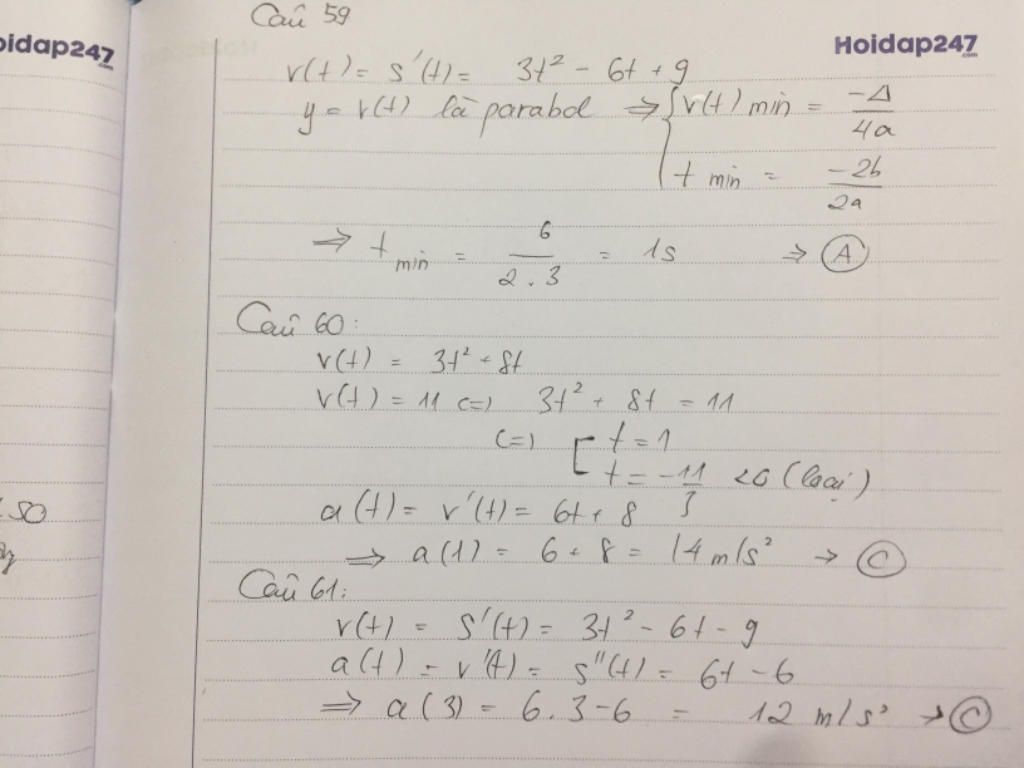 Câu 59
oidap247
.com
Hoidap247
.com
v(t) = s'(t) = 3t² - 6t + 9
y = v(t) là parabol => { v(t) min = -Δ/4a
t min = -2b/2a
=> t min = 6/2.3 = 1s => A
Câu 60:
v(t) = 3t² + 8t
v(t) = 11 (=) 3t² + 8t = 11
(=) [ t = 1
t = -11/3 <0 (loại)
a(t) = v'(t) = 6t + 8
50
=> a(1) = 6 + 8 = 14 m/s² -> C
Câu 61:
v(t) = S'(t) = 3t² - 6t - 9
a(t) = v'(t) = s''(t) = 6t - 6
=> a(3) = 6.3-6 = 12 m/s² -> C